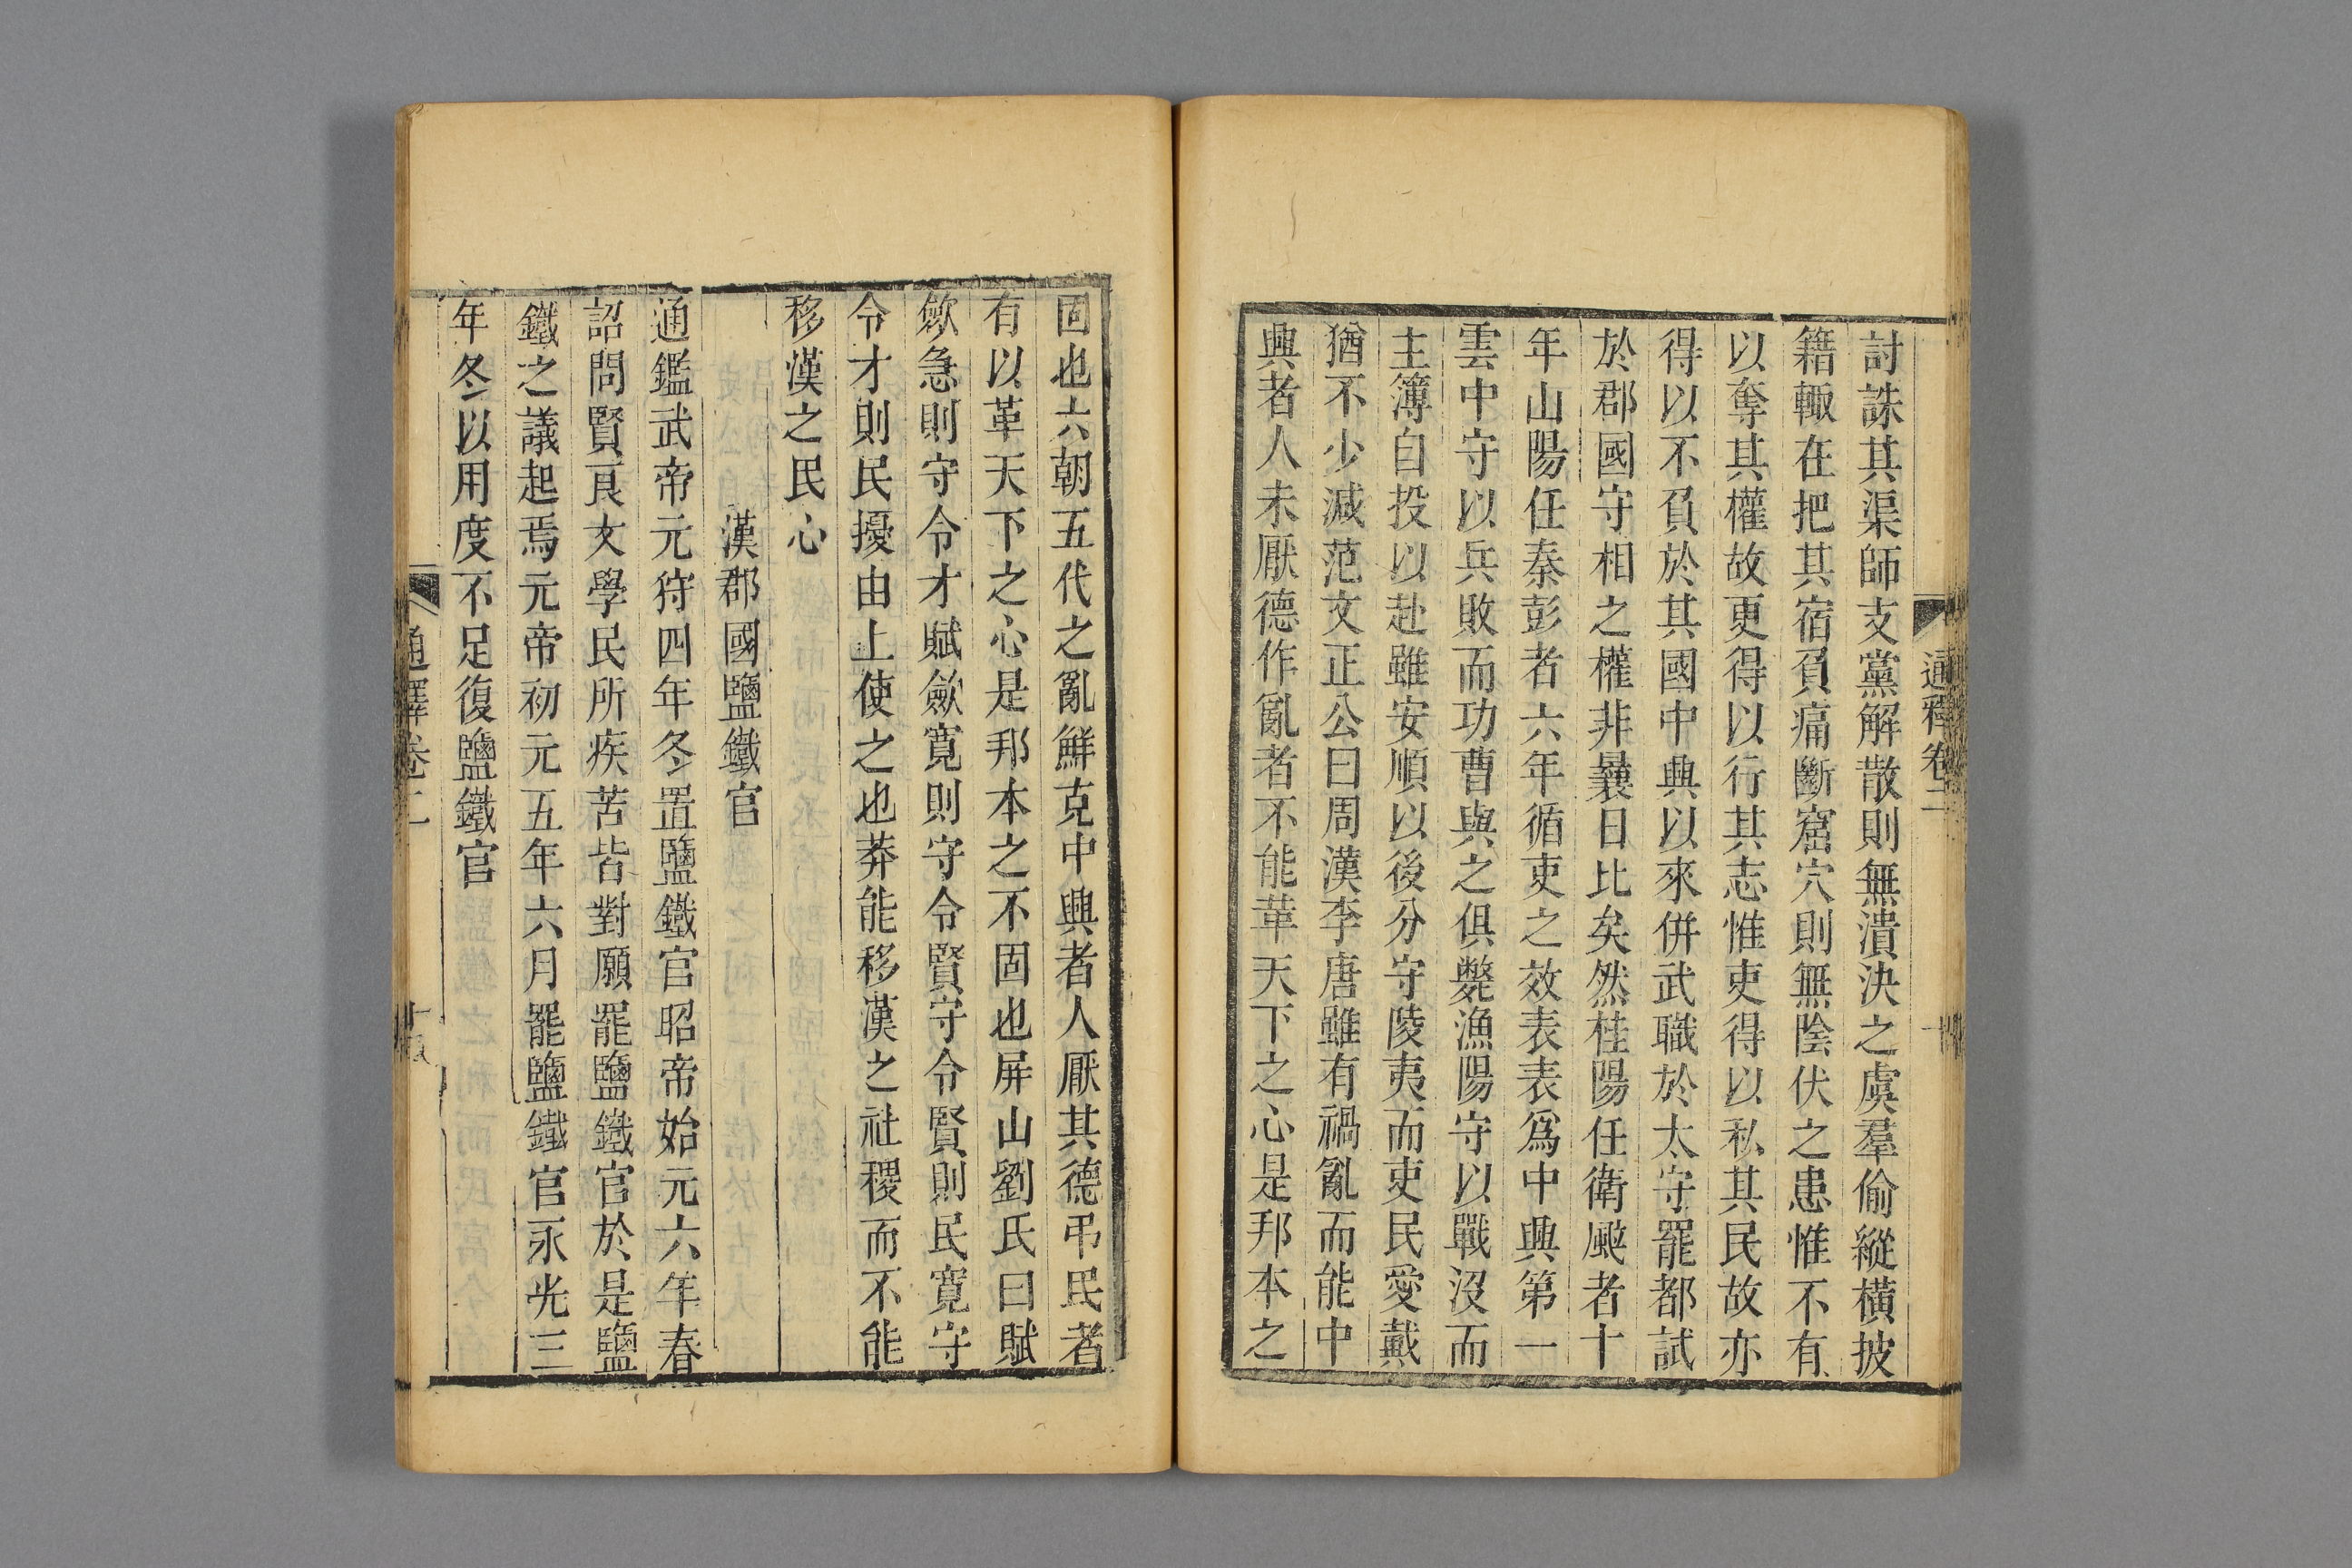 通釋卷二
討誅其渠師支黨解散則無潰決之虞羣偷縱橫披
籍輙在把其宿負痛斷窟穴則無陰伏之患惟不有
以奪其權故更得以行其志惟吏得以私其民故亦
得以不負於其國中興以來併武職於太守罷都試
於郡國守相之權非曩日比矣然桂陽任衛颰者十
年山陽任秦彭者六年循吏之效表表爲中興第一
雲中守以兵敗而功曹與之俱斃漁陽守以戰沒而
主簿自投以赴雖安順以後分守陵夷而吏民愛戴
猶不少減范文正公曰周漢李唐雖有禍亂而能中
興者人未厭德作亂者不能革天下之心是邦本之
固也六朝五代之亂鮮克中興者人厭其德弔民者
有以革天下之心是邦本之不固也屏山劉氏曰賦
歛急則守令才賦歛寬則守令賢守令賢則民寬守
令才則民擾由上使之也莽能移漢之社稷而不能
移漢之民心
漢郡國鹽鐵官
通鑑武帝元狩四年冬置鹽鐵官昭帝始元六年春
詔問賢良文學民所疾苦皆對願罷鹽鐵官於是鹽
鐵之議起焉元帝初元五年六月罷鹽鐵官永光三
年冬以用度不足復鹽鐵官
通釋卷二